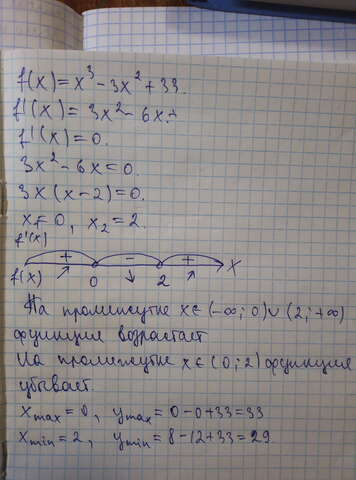 f(x) = x³ - 3x² + 33.
f'(x) = 3x² - 6x.
f'(x) = 0.
3x² - 6x = 0.
3x(x - 2) = 0.
x₁ = 0, x₂ = 2.
f'(x)
+ - +
f(x) ↗ 0 ↘ 2 ↗ x
На промежутке x ∈ (-∞; 0) ∪ (2; +∞)
функция возрастает
На промежутке x ∈ (0; 2) функция
убывает.
x max = 0, y max = 0 - 0 + 33 = 33
x min = 2, y min = 8 - 12 + 33 = 29